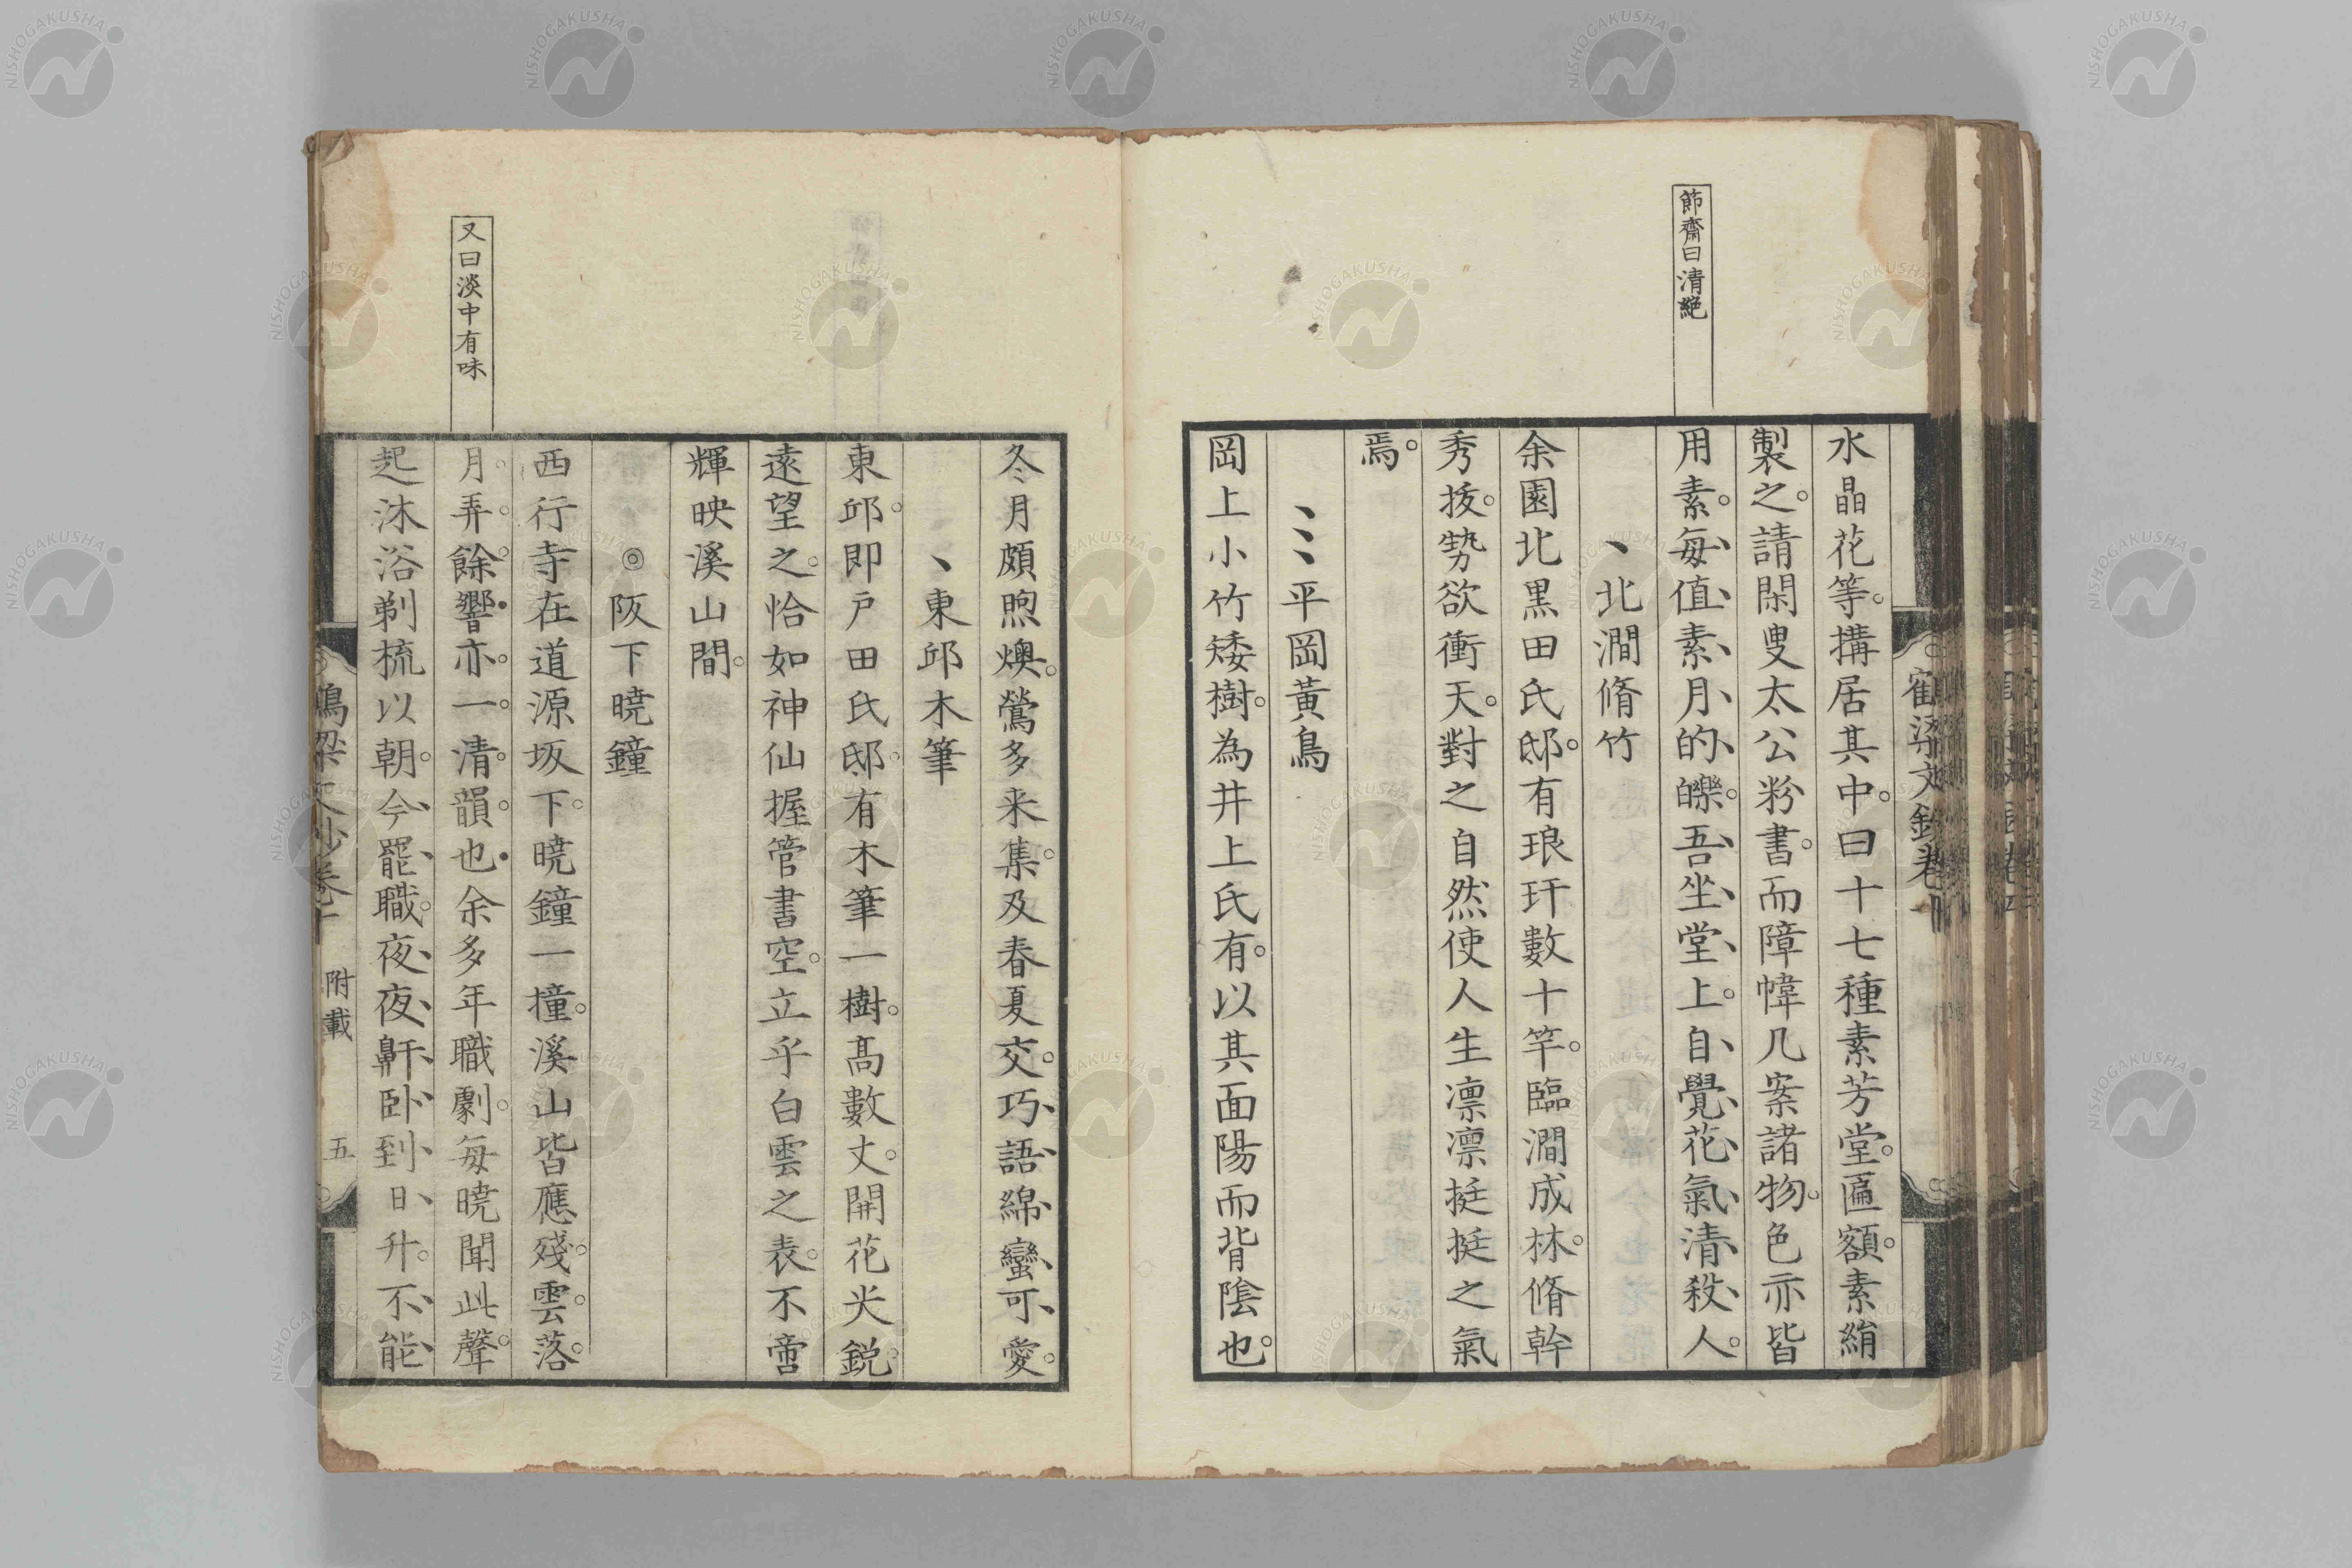 節齋曰清絶
水晶花等。搆居其中。曰十七種素芳堂。匾額。素絹
製之。請閑叟太公粉書。而障幃几案諸物。色亦皆
用素。每、值、素、月、的、皪。吾、坐、堂、上。自、覺、花、氣、清、殺、人。
、北澗脩竹
余園北黒田氏邸。有琅玕數十竿。臨澗成林。脩幹
秀拔。勢欲衝天。對之自然使人生凛凛挺挺之氣
焉。
、、、平岡黃鳥
岡上小竹矮樹。為井上氏有。以其面陽而背陰也。
又曰淡中有味
冬月頗煦燠。鶯多来集。及春夏交。巧、語、綿、蠻、可、愛。
、東邱木筆
東邱。即戸田氏邸。有木筆一樹。髙數丈。開花尖鋭。
遠望之。恰如神仙握管書空。立乎白雲之表。不啻
輝映溪山間。
◎阪下曉鐘
西行寺在道源坂下。曉鐘一撞。溪山皆應。殘雲。落。
月。弄。餘。響亦。一。清。韻。也余多年職劇。每曉聞此聲。
起沐浴剃梳以朝。今、罷、職。夜、夜、鼾、卧、到、日、升。不、能、
附載
五
NISHOGAKUSHA